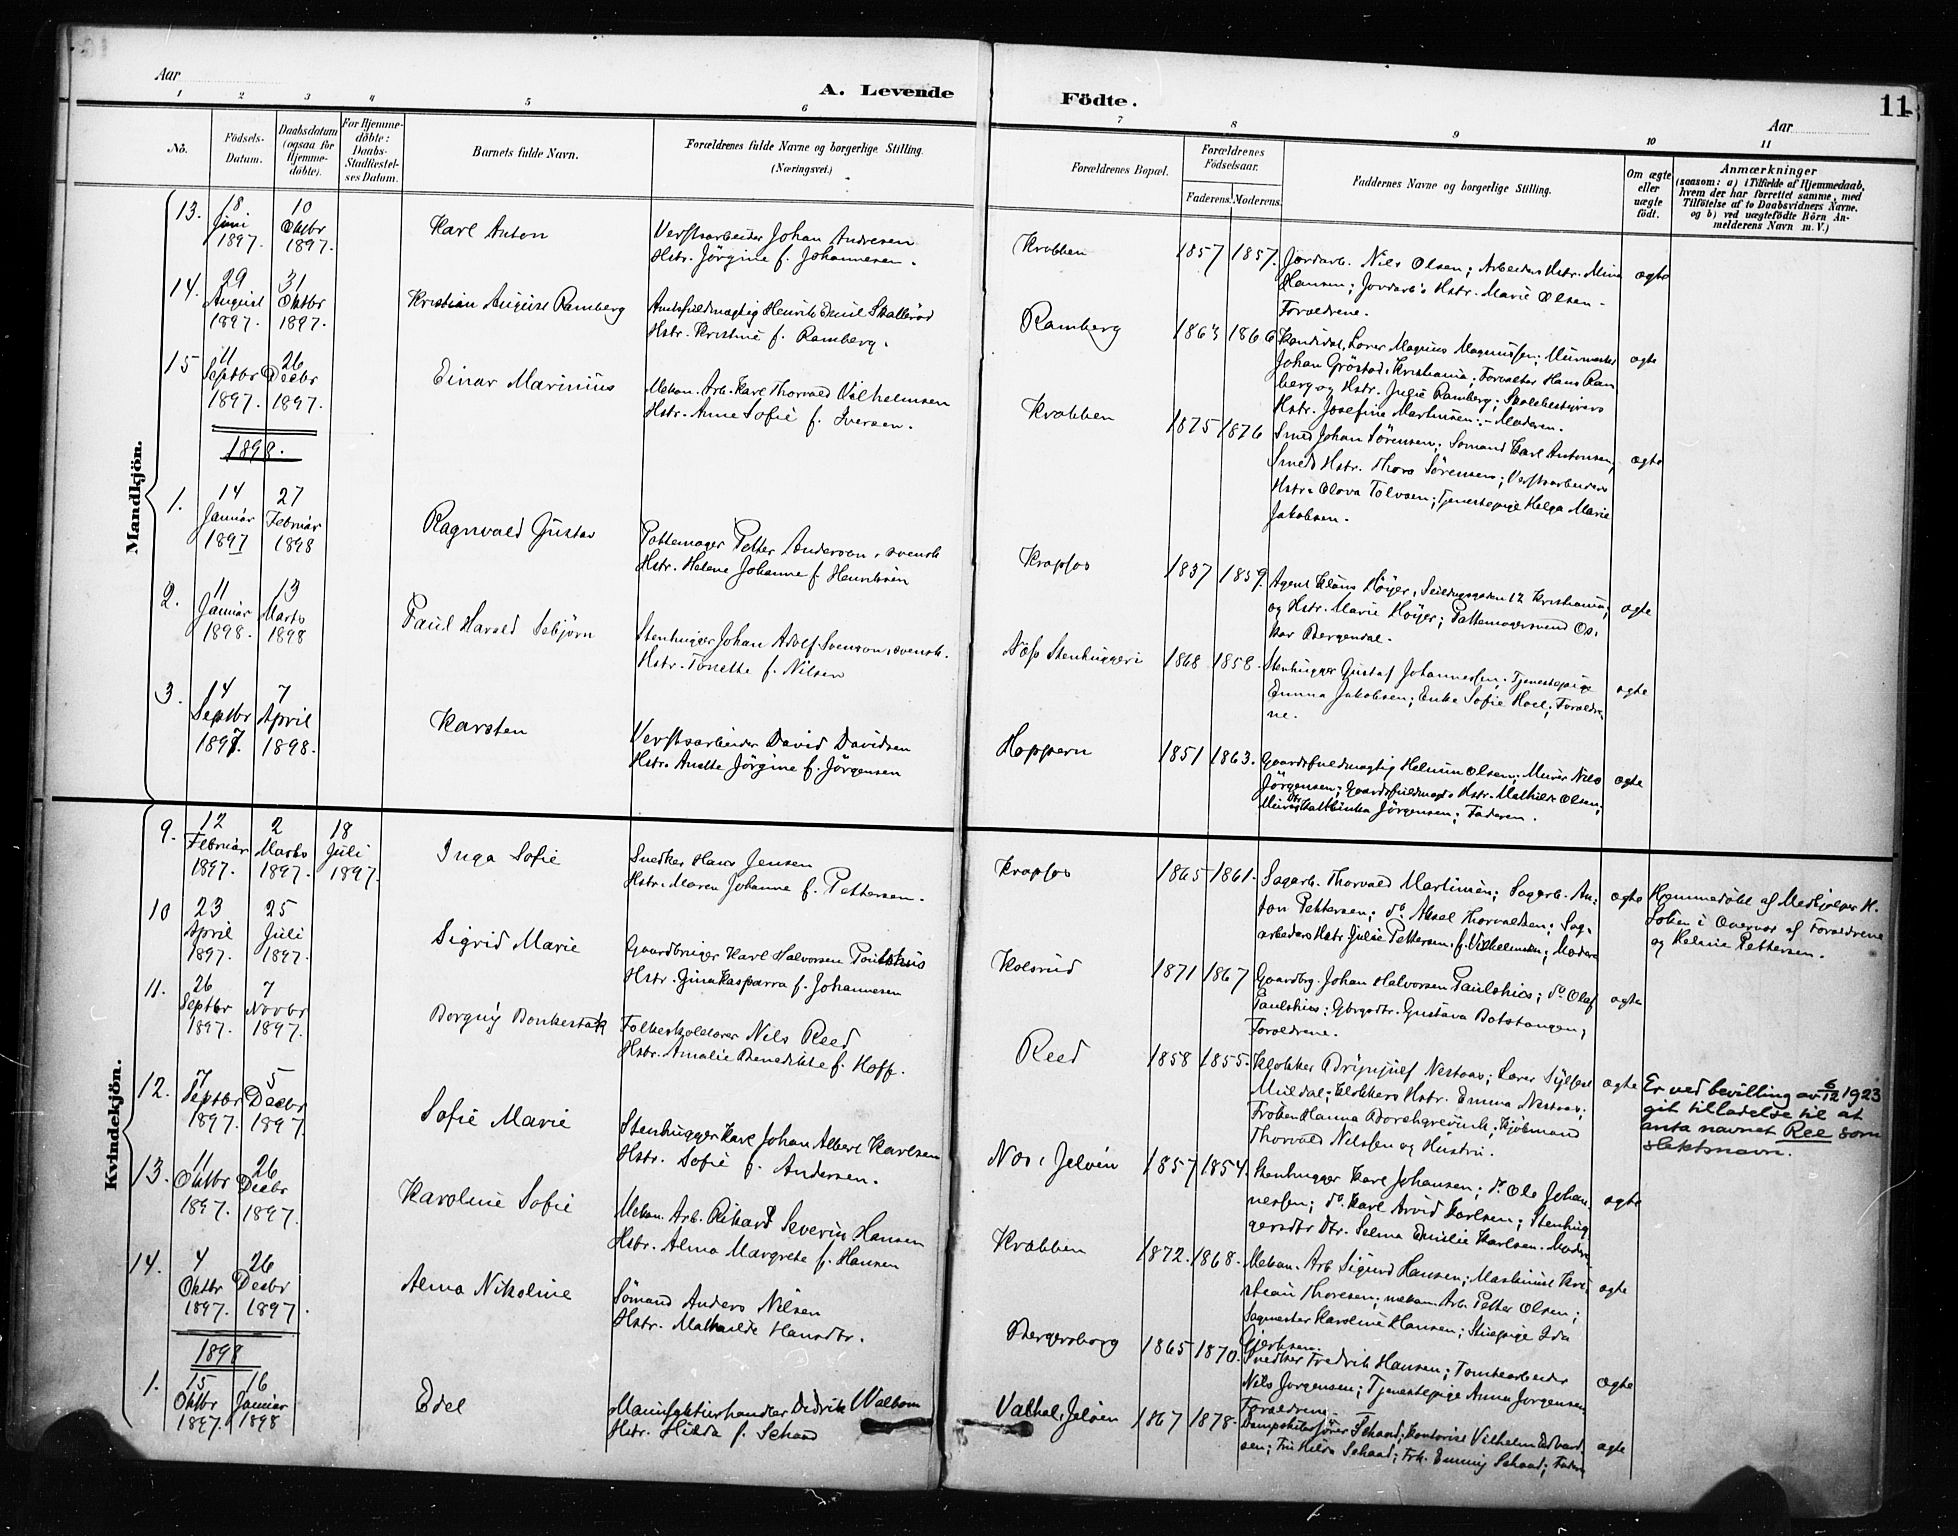 Aar
A. Levende Födte.
11
Aar
1 2 3 4 5 6 7 8 9 10 11
No.
Födsels-Datum.
Daabsdatum (ogsaa for Hjemme-döbte).
For Hjemme-döbte: Daabs-Stadfæstel-ses Datum.
Barnets fulde Navn.
Forældrenes fulde Navne og borgerlige Stilling.
(Næringsvei.)
Forældrenes Bopæl.
Forældrenes Födselsaar.
Faderens. Moderens.
Faddernes Navne og borgerlige Stilling.
Om ægte eller uægte født.
Anmærkninger
(saasom: a) i Tilfælde af Hjemmedaab,
hvem der har forrettet samme, med
Tilföielse af to Daabsvidners Navne.
og b) ved uægtefödte Börn An-
melderens Navn m. V.)
Mandkjön.
13. 18 Juni 1897. 10 Oktbr 1897.
Karl Anton
Verftsarbeider Johan Andresen
Hstr. Jörgine f. Johannesen.
Krabben 1857 1857.
Jordarb. Nils Olsen; Arbeiders Hstr. Mina
Hansen; Jordarb's Hstr. Marie Olsen -
Forældrene.
ægte
14. 29 August 1897. 31 Oktbr 1897.
Kristian August Ramberg
Amtsfuldmægtig Henrik Emil Skallerød
Hstr. Kristine f. Ramberg.
Ramberg 1863 1866
Kandidat, Lærer Magnus Magnussen; Murmester
Johan Gröstad, Kristiania; Forvalter Hans Ram
berg og Hstr. Julie Ramberg; Skolebestyrers
Hstr. Josefine Martinsen. - Moderen.
ægte
15 11 Septbr 1897. 26 Decbr 1897.
Einar Marinius
Mekan. Arb. Karl Thorvald Vilhelmsen
Hstr. Anne Sofie f. Iversen.
Krabben 1875 1876
Smed Johan Sörensen; Sømand Carl Antonsen,
Smeds Hstr. Thora Sörensen; Verftsarbeiders
Hstr. Olova Tolvsen; Tjenestepige Helga Marie
Jakobsen.
ægte
1898.
1. 14 Januar 1897 27 Februar 1898
Ragnvald Gustav
Pottemager Petter Anderson, svensk
Hstr. Helene Johanne f. Henriksen
Krapfos 1837 1859.
Agent Klaus Höyer, Seildugsgaden 12 Kristiania,
og Hstr. Marie Höyer; Pottemagersvend Os-
kar Bergendal.
ægte
2. 11 Januar 1898. 13 Marts 1898
Paul Harald Sebjörn
Stenhugger Johan Adolf Svenson, svensk.
Hstr. Tonette f. Nilsen
Næs Stenhuggeri 1868 1858.
Stenhugger Gustaf Johannessen; Tjenestepige
Emma Jakobsen; Enke Sofie Hoel; Forældre-
ne.
ægte
3. 14 Septbr 1897. 7 April 1898.
Karsten
Verftsarbeider David Davidsen
Hstr. Anette Jörgine f. Jörgensen
Hoppern 1851 1863.
Gaardsfuldmægtig Helmin Olsen; Murer Nils
Jörgensen; Gaardsfuldmægt. Hstr. Mathilde Olsen;
Murer Hstr. Jörgensen; Faderen.
ægte
Kvindekjön.
9. 12 Februar 1897. 2 Marts 1897. 18 Juli 1897.
Inga Sofie
Snedker Hans Jensen
Hstr. Maren Johanne f. Pettersen.
Krapfos 1865 1861.
Sagarb. Thorvald Martinsen; Sagarb. An-
ton Pettersen; do. Aksel Thorvaldsen; Sag-
arbeiders Hstr Julie Pettersen f. Vilhelmsen; Modere
ægte
Hjemmedöbt af Medhjælper H.
Solien i Overvær af Forældrene
og Helene Pettersen.
10 23 April 1897. 25 Juli 1897.
Sigrid Marie
Gaardbruger Karl Halvorsen Paulshus
Hstr. Gina Kasparra f. Johannesen
Kolsrud 1871 1867
Gaardbrg. Johan Halvorsen Paulshus; do. Olaf
Paulshus; Gbrgsdtr. Gustava Botstangen;
Forældrene.
ægte
11. 26 Septbr 1897. 7 Novbr 1897.
Borgny Bonkestok
Folkeskolelærer Nils Reed
Hstr. Amalie Benedikte f. Hoff.
Reed 1858 1855.
Klokker Brynjulf Nestaas; Lærer Sylfest
Muldal; Klokkers Hstr. Emma Nestaas;
Fröken Hanna Borchgrevink; Kjöbmand
Thorvald Nilssen og Hustru.
ægte
Er ved bevilling av 6/12 1923
git tilladelse til at
anta navnet Ree som
slektsnavn.
12. 7 Septbr 1897. 5 Decbr 1897.
Sofie Marie
Stenhugger Karl Johan Albert Karlsen
Hstr. Sofie f. Andersen.
Næs i Jelöen 1857 1854.
Stenhugger Karl Johansen; do Ole Johan
nessen; do. Karl Arvid Karlsen; Stenhug
gersdtr Dtr. Selma Emilie Karlsen. Modere
ægte
13. 11 Oktbr 1897. 26 Decbr 1897.
Karoline Sofie
Mekan. Arb. Rikard Severin Hansen
Hstr. Alma Margrete f. Hansen
Krabben 1872. 1868.
Mekan. Arb Sigurd Hansen; Maskinist Kri-
stian Thoresen; mekan. Arb. Petter Olsen;
Sagmester Karoline Hansen; Stuepige Ida
Gjerlsen.
ægte
14. 4 Oktbr 1897. 26 Decbr 1897.
Alma Nikoline
Sömand Anders Nilsen
Hstr. Mathilde Hansdtr.
Bergersborg 1865 1870.
Snedker Fredrik Hansen; Tomtearbeider
Nils Jorgensen; Tjenestepige Anna Jorgensen
Forældrene.
ægte
1898
1. 15 Oktbr 1897. 16 Januar 1898
Edel
Manufakturhandler Didrik Walbom
Hstr. Hilda f. Schaad
Valhal, Jelöen 1867 1878.
Dampskibsförer Schaad; Kontorist Vilhelm Edvard
sen; Fru Hilda Schaad; Frk. Emmy Schaad; Fader
ægte